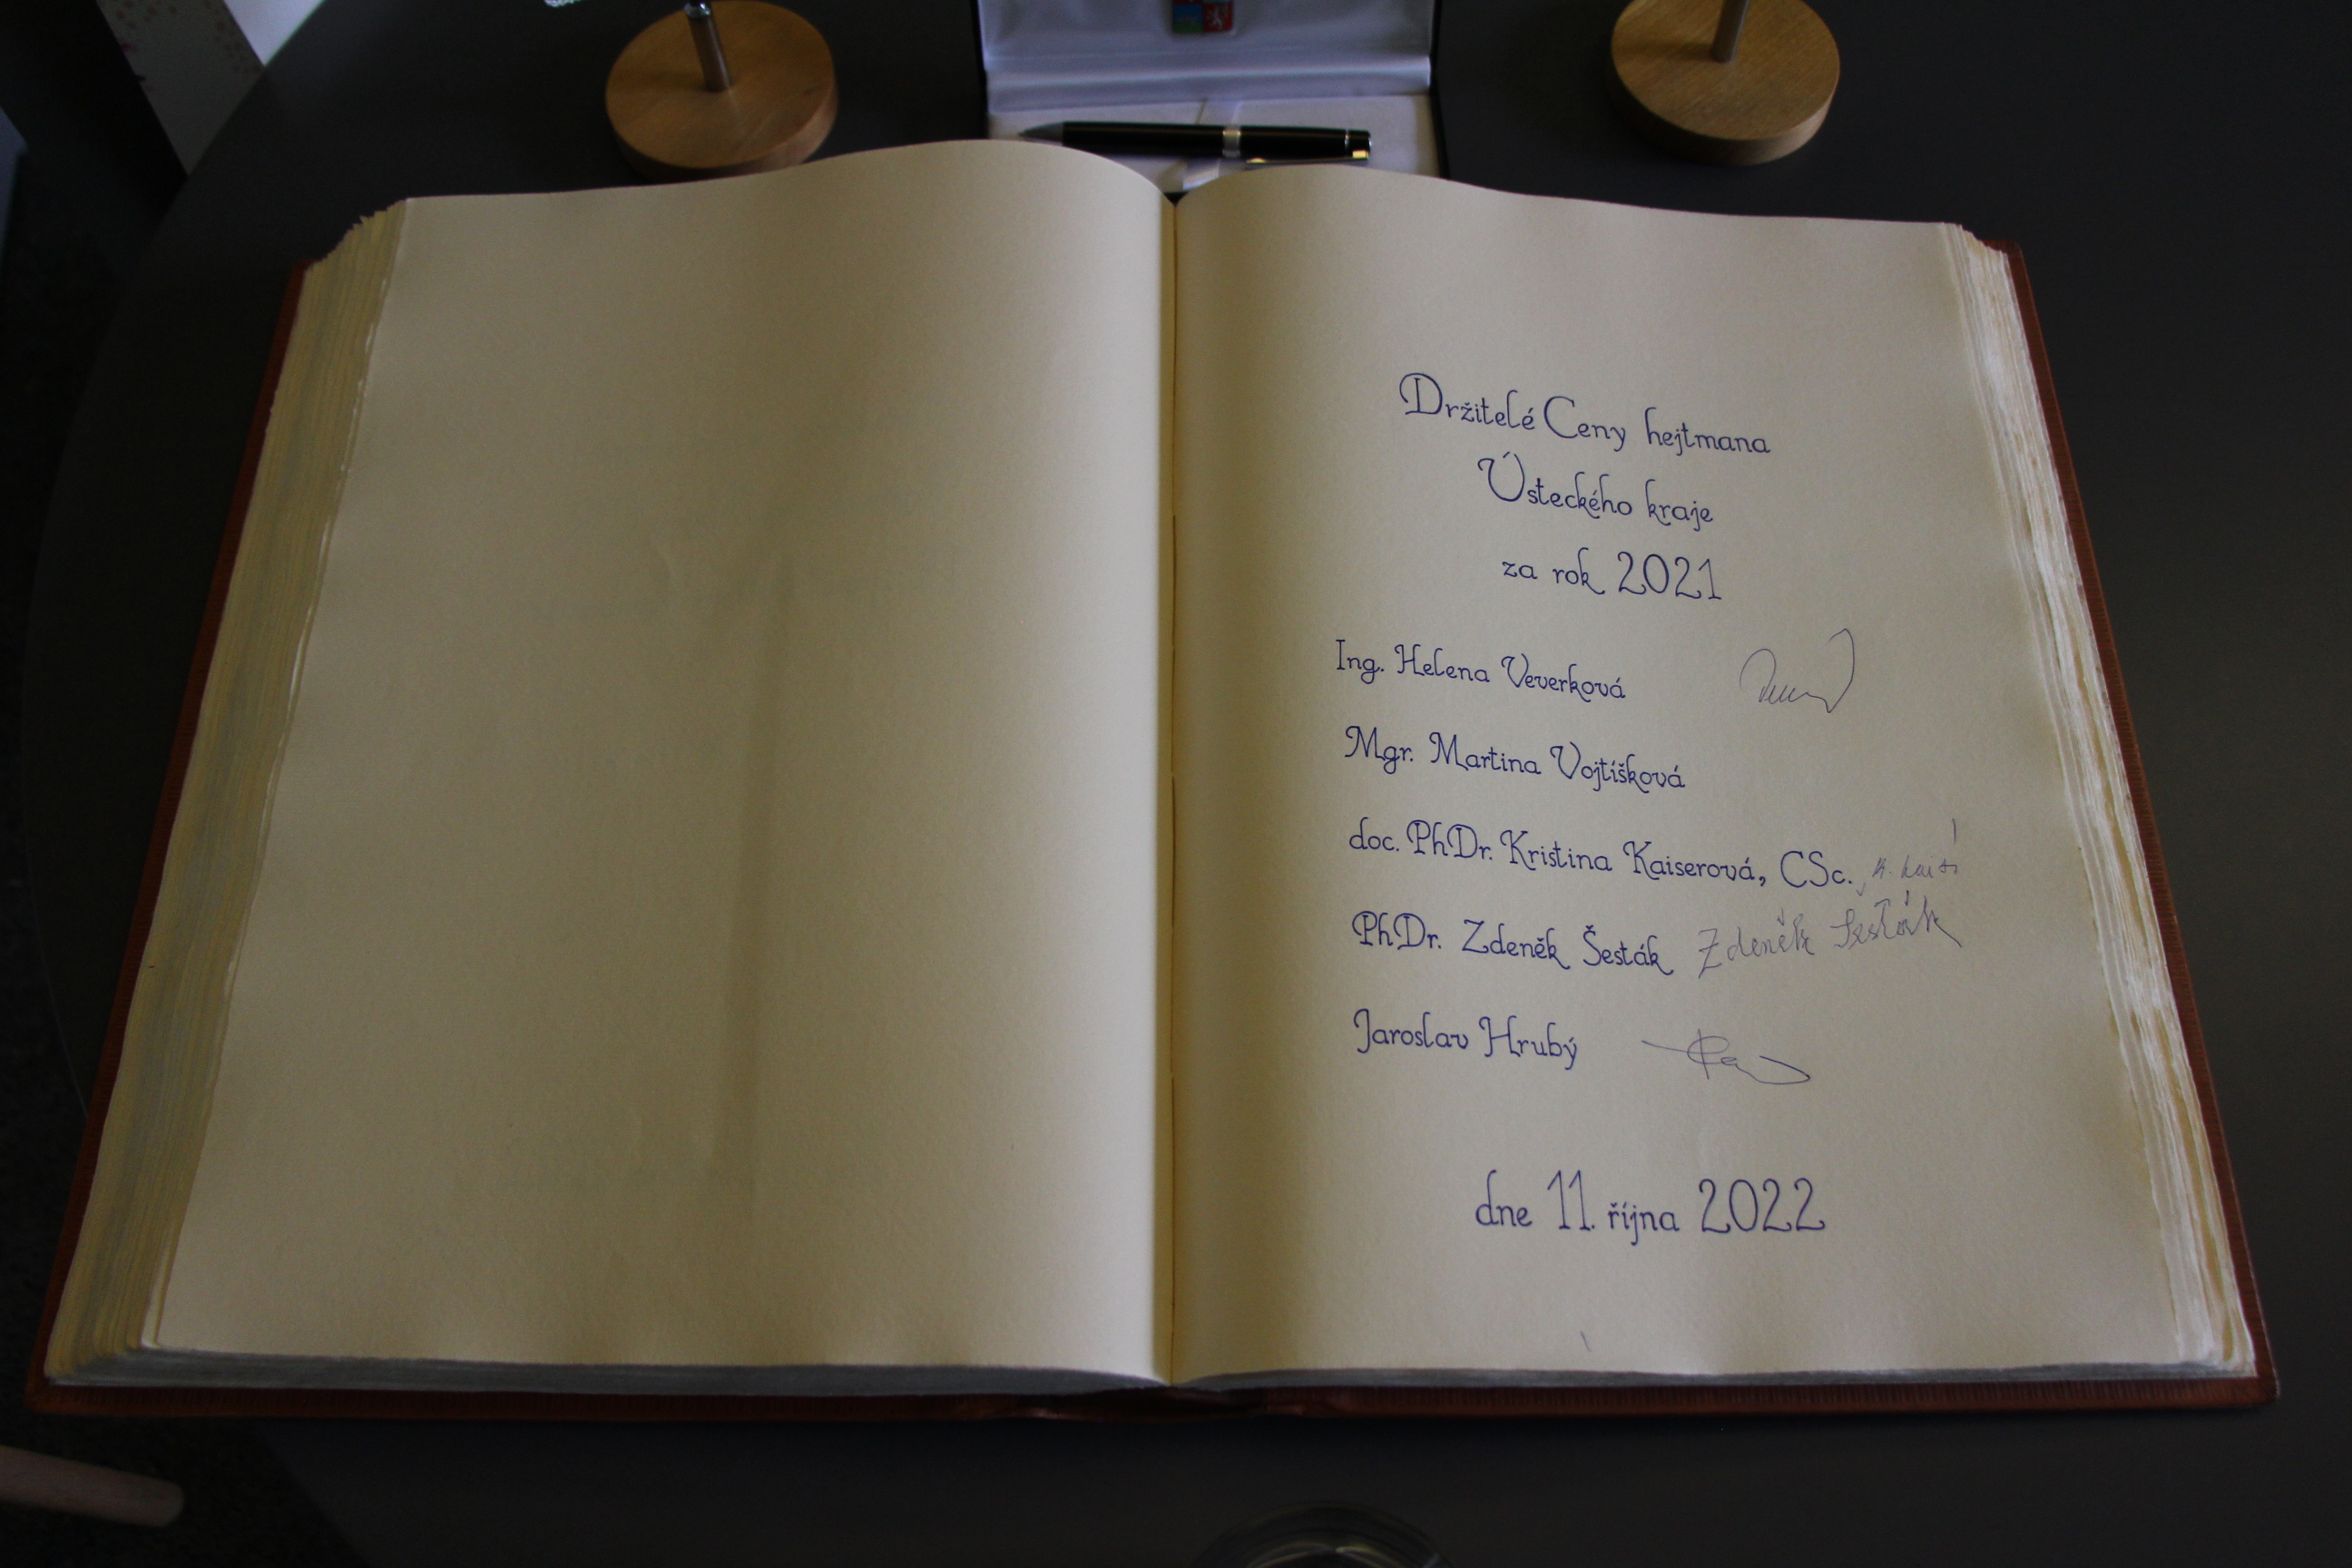 Držitelé Ceny hejtmana
Ústeckého kraje
za rok 2021
Ing. Helena Veverková
Mgr. Martina Vojtíšková
doc. PhDr. Kristina Kaiserová, CSc.
PhDr. Zdeněk Šesták Zdeněk Šesták
Jaroslav Hrubý
dne 11. října 2022